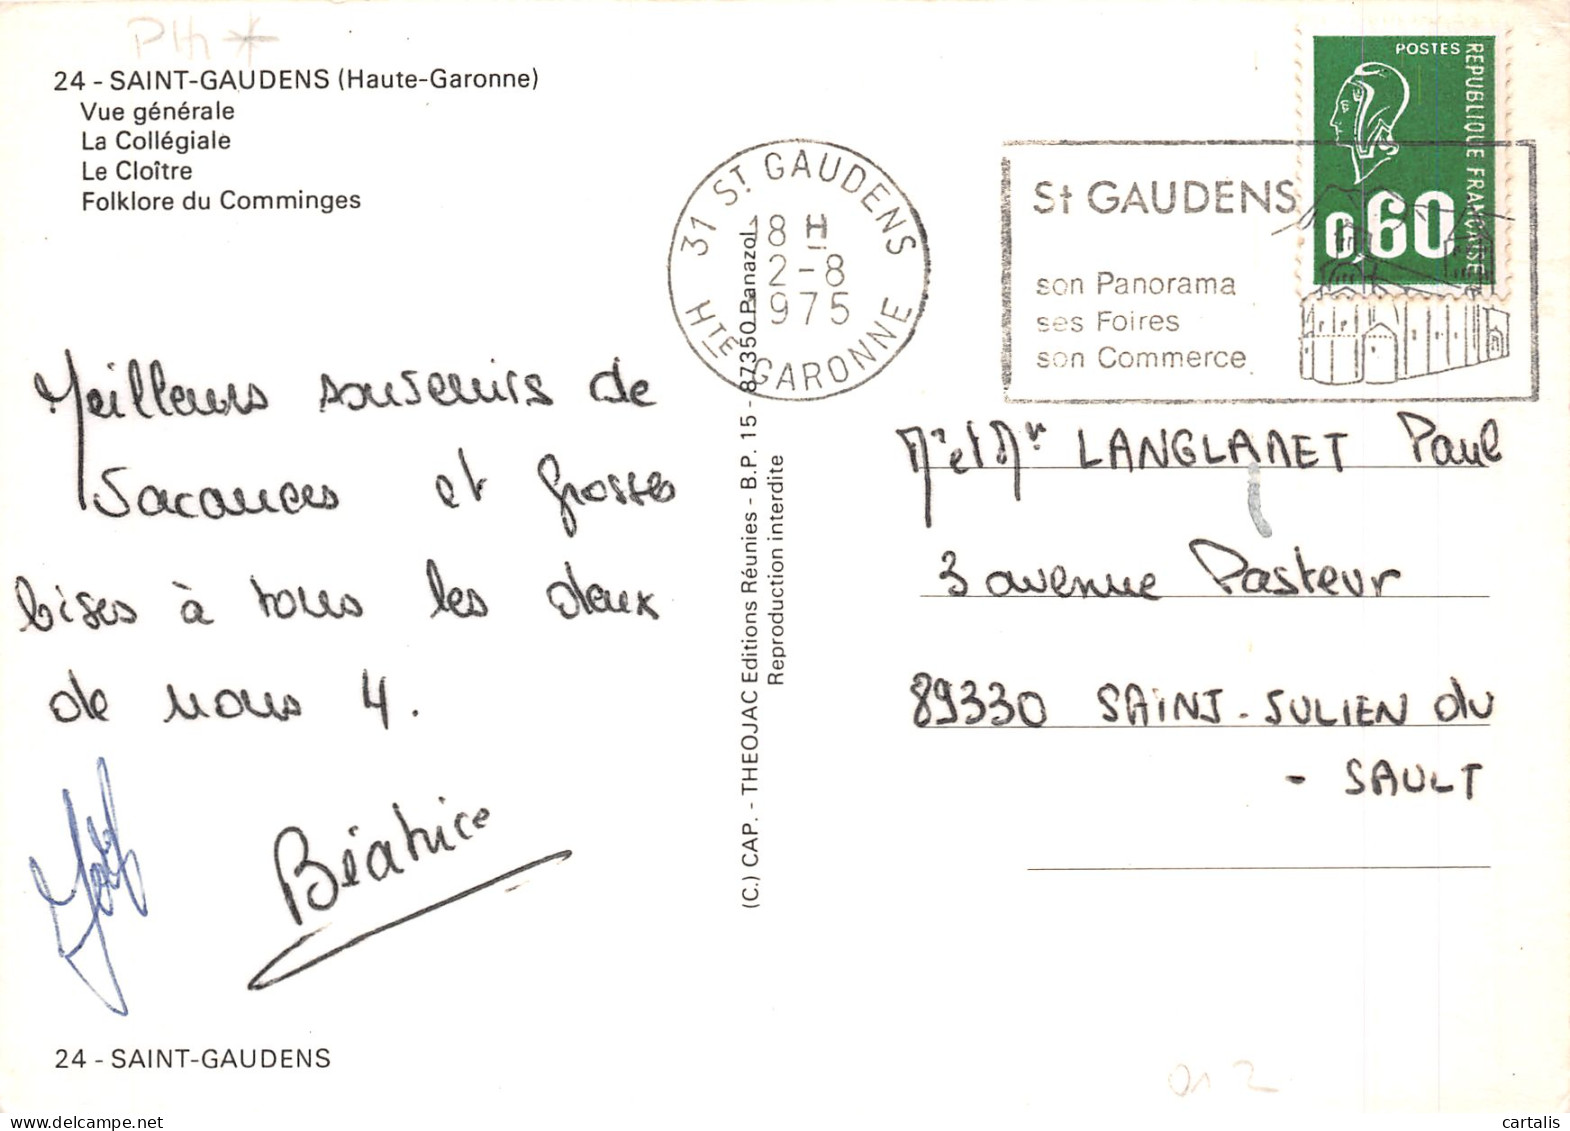 24 - SAINT-GAUDENS (Haute-Garonne)
Vue générale
La Collégiale
Le Cloître
Folklore du Comminges
Meilleurs souvenirs de
vacances et grosses
bises à tous les deux
de nous 4.
Béatrice
24 - SAINT-GAUDENS
(C.) CAP. - THEOJAC Editions Réunies - B.P. 15 - 87350 Panazol
Reproduction interdite
31 ST GAUDENS
18 H
2-8
1975
HTE GARONNE
St GAUDENS
son Panorama
ses Foires
son Commerce
POSTES
REPUBLIQUE FRANCAISE
0,60
Mr et Mr LANGLAMET Paul
3 avenue Pasteur
89330 SAINT-JULIEN du
- SAULT
cartalis